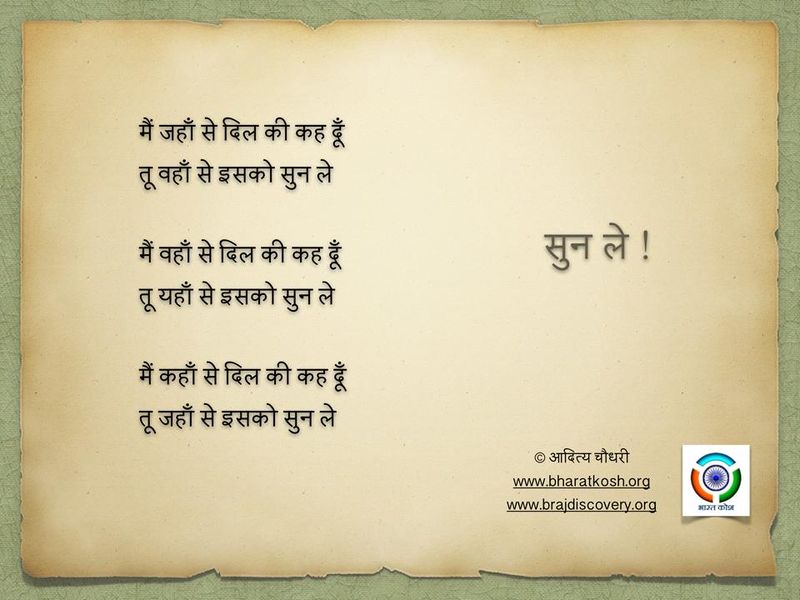 मैं जहाँ से दिल की कह दूँ
तू वहाँ से इसको सुन ले
मैं वहाँ से दिल की कह दूँ
तू यहाँ से इसको सुन ले
मैं कहाँ से दिल की कह दूँ
तू जहाँ से इसको सुन ले
सुन ले !
© आदित्य चौधरी
www.bharatkosh.org
www.brajdiscovery.org
भारत कोश